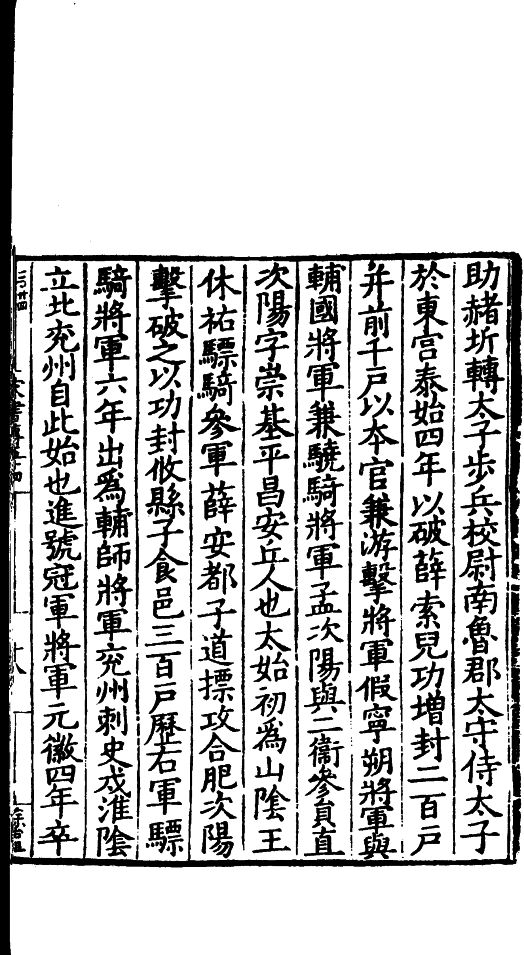 助赭圻轉太子步兵校尉南魯郡太守侍太子
於東宫泰始四年以破薛索兒功增封二百戸
并前千戸以本官兼游擊將軍假寧朔將軍與
輔國將軍兼驍騎將軍孟次陽與二衞參員直
次陽字崇基平昌安丘人也太始初爲山陰王
休祐驃騎參軍薛安都子道摽攻合肥次陽
擊破之以功封攸縣子食邑三百戸歷右軍驃
騎將軍六年出爲輔師將軍兖州刺史戍淮陰
立北兖州自此始也進號冠軍將軍元徽四年卒